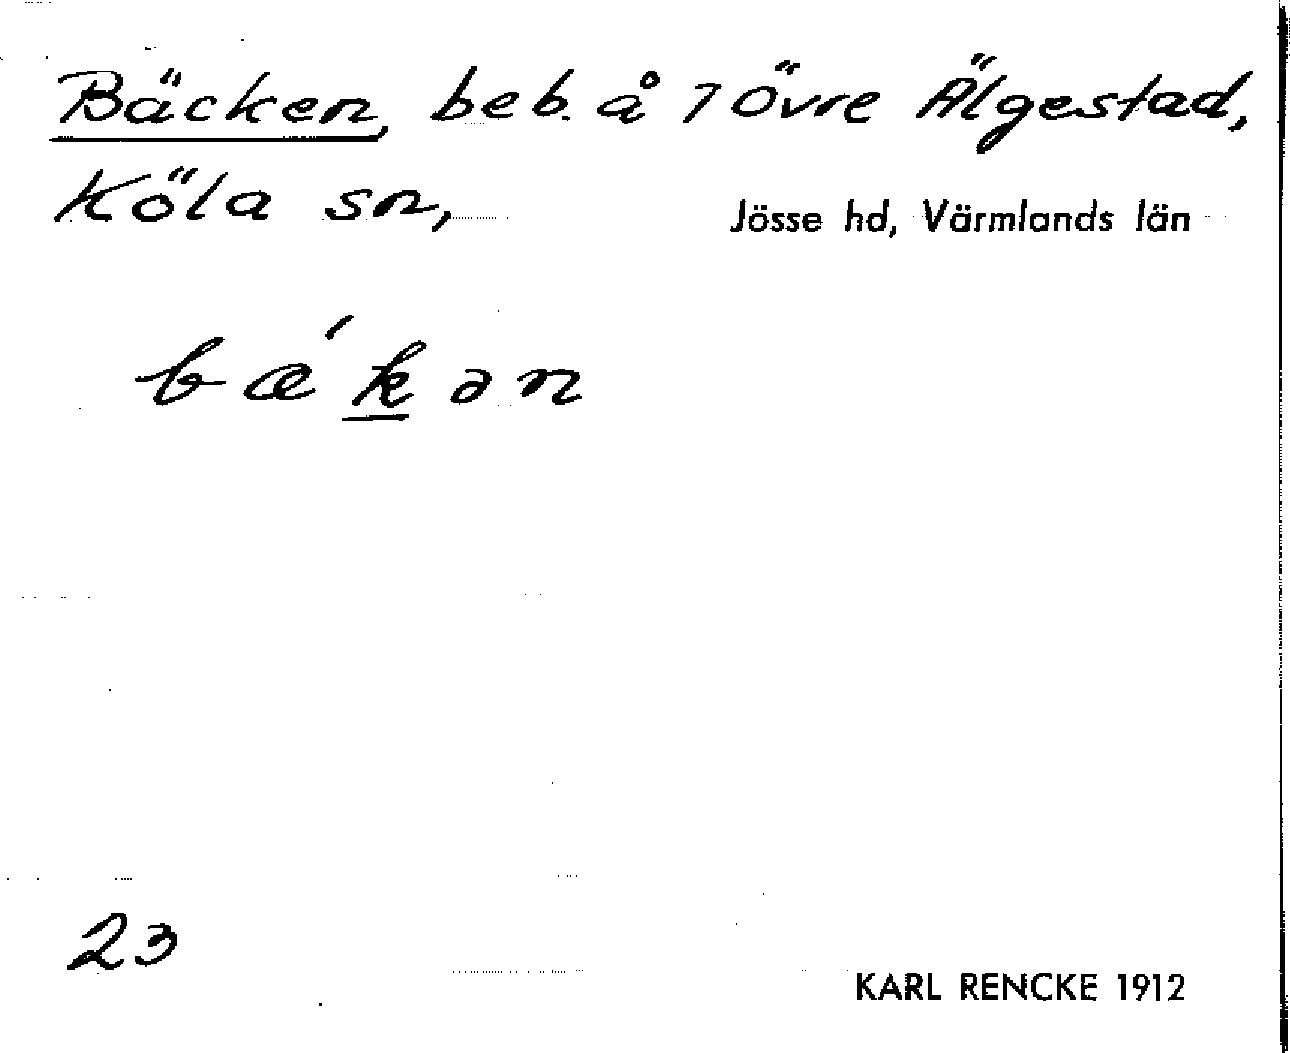 Bäcken, beb. å 7 Övre Älgestad,
Köla sn, Jösse hd, Värmlands län
bǽk̲ən
23
KARL RENCKE 1912